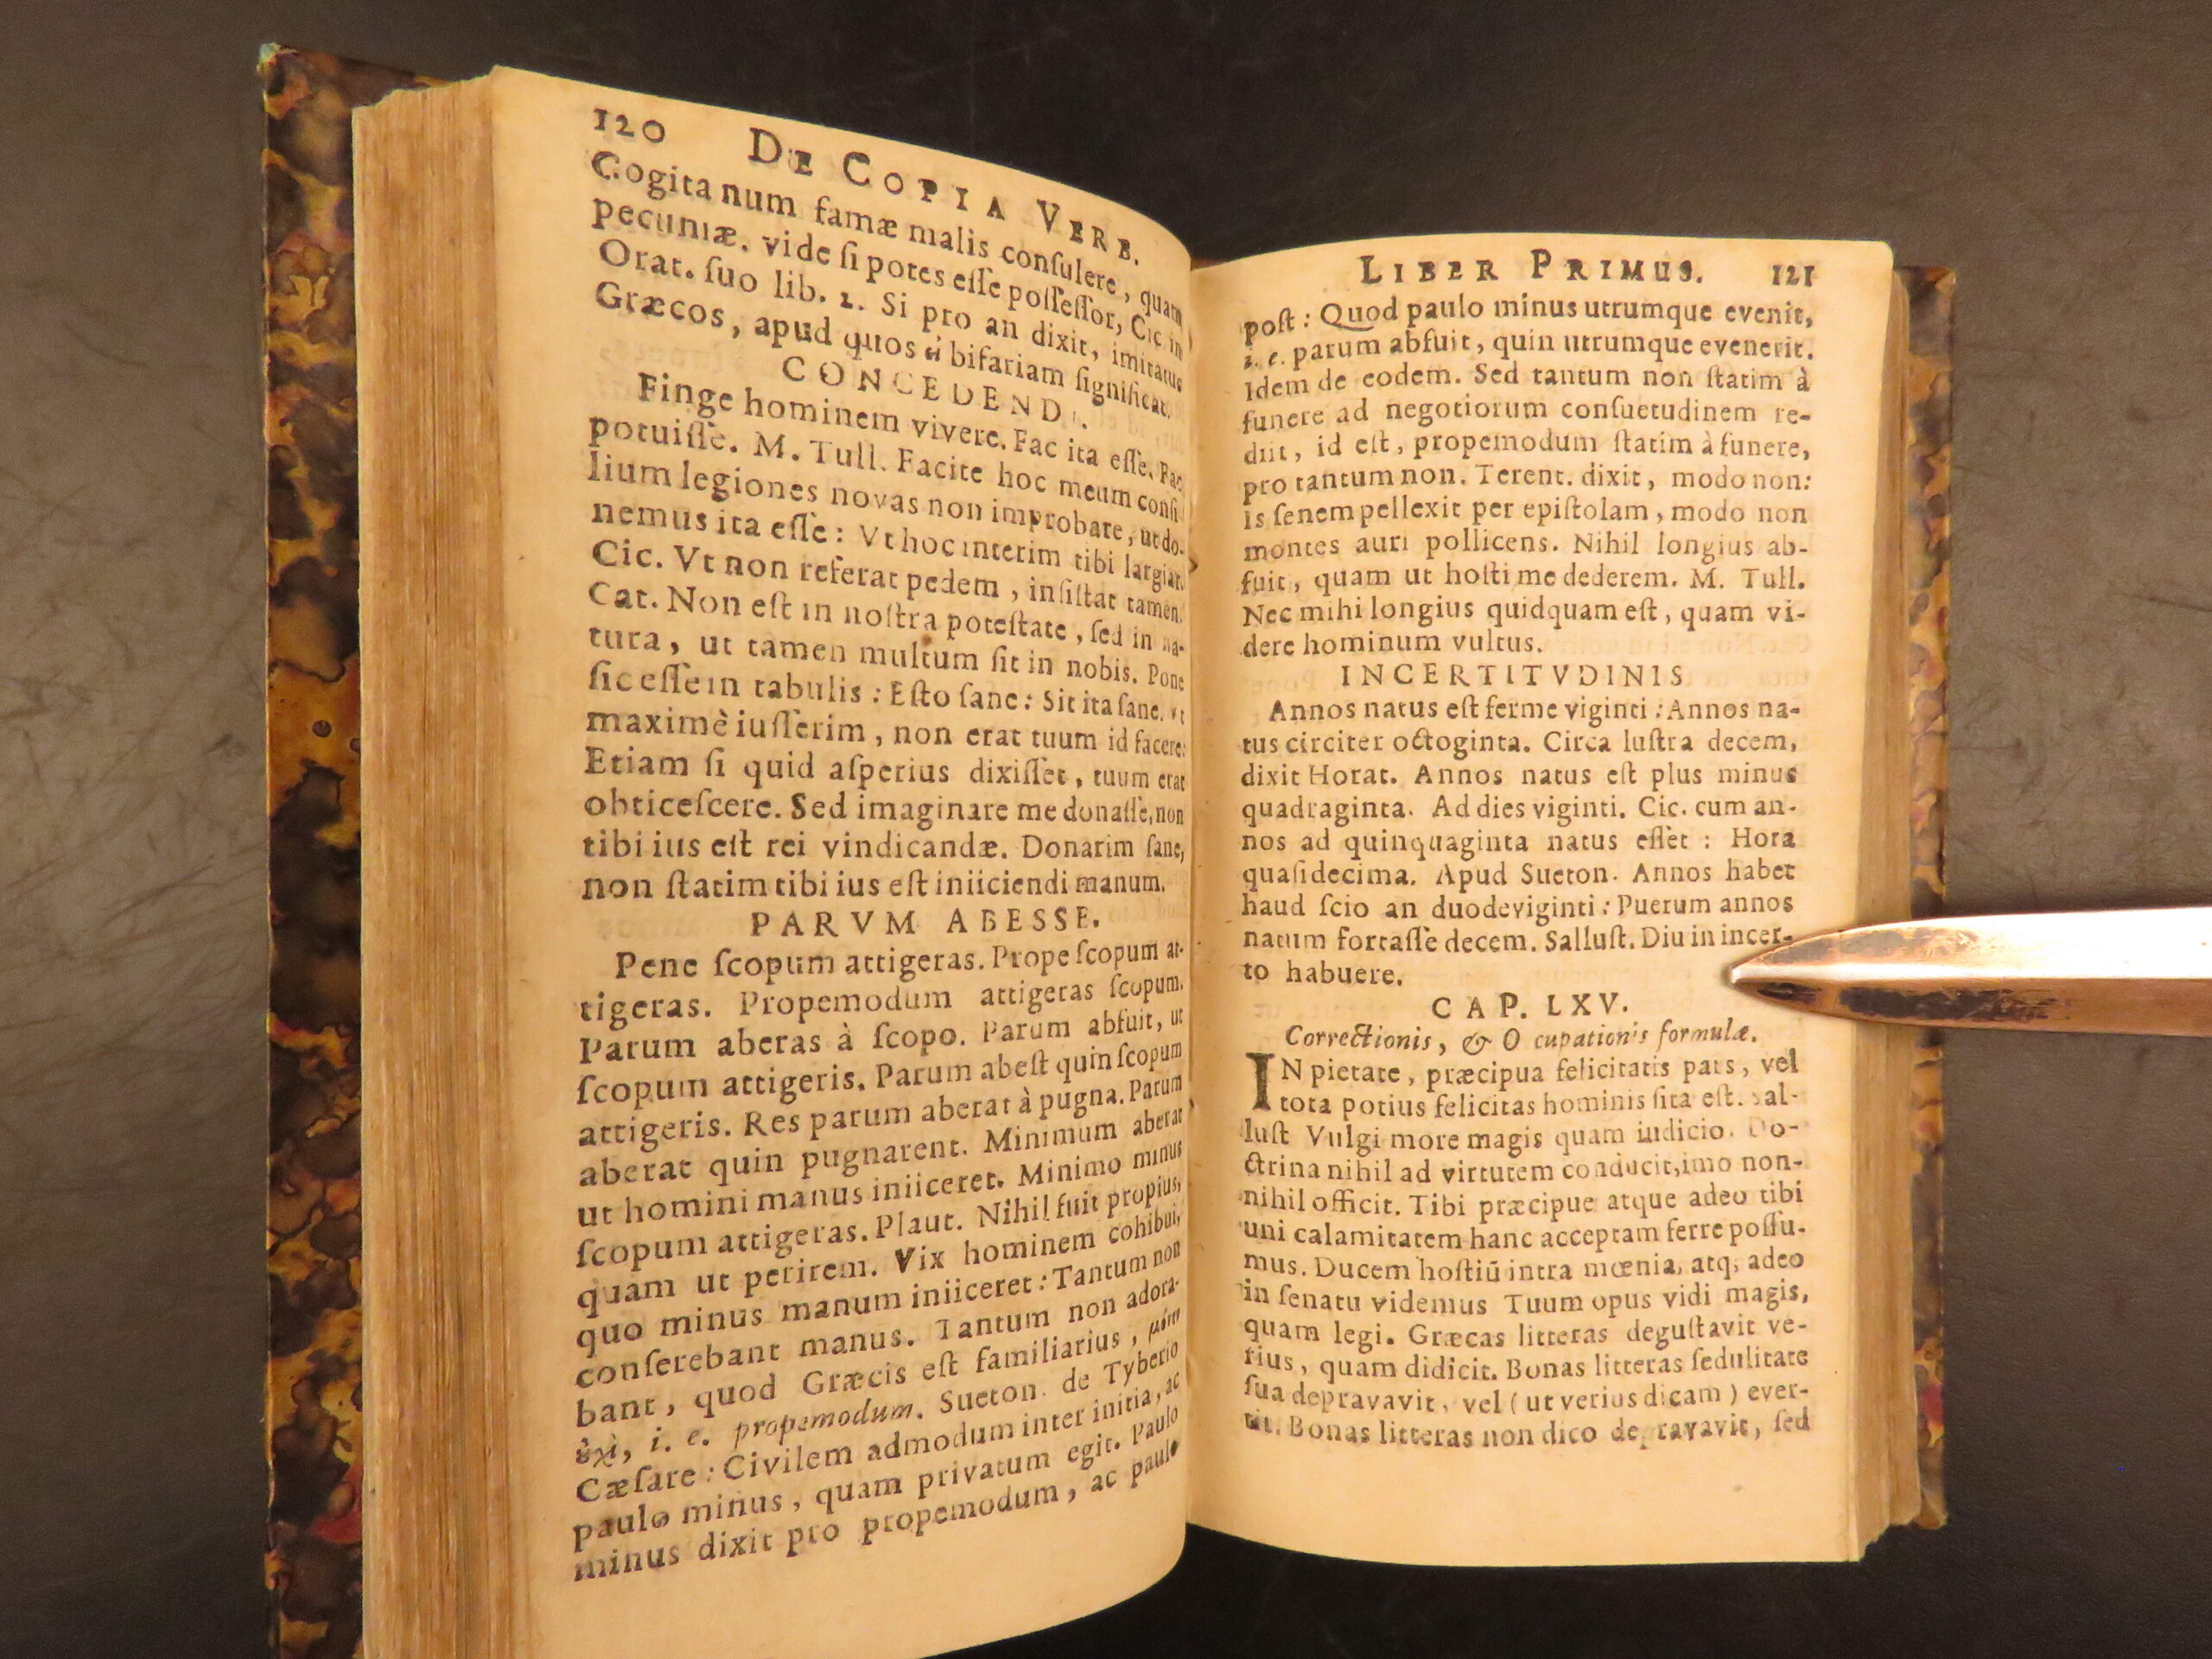 120 DE COPIA VERB.
Cogita num famæ malis conſulere, quam
pecuniæ. vide ſi potes eſſe poſſeſſor, Cic. in
Orat. ſuo lib. 2. Si pro an dixit, imitatus
Græcos, apud quos εἰ bifariam ſignificat.
CONCEDENDI.
Finge hominem vivere. Fac ita eſſe. Fac
potuiſſe. M. Tull. Facite hoc meum conſi
lium legiones novas non improbare, ut do-
nemus ita eſſe: Vt hoc interim tibi largiar.
Cic. Vt non referat pedem, inſiſtat tamen.
Cat. Non eſt in noſtra poteſtate, ſed in na-
tura, ut tamen multum ſit in nobis. Pone
ſic eſſe in tabulis: Eſto ſane: Sit ita ſane. vt
maximè iuſſerim, non erat tuum id facere:
Etiam ſi quid aſperius dixiſſet, tuum erat
obticeſcere. Sed imaginare me donaſſe, non
tibi ius eſt rei vindicandæ. Donarim ſane,
non ſtatim tibi ius eſt iniiciendi manum.
PARVM ABESSE.
Pene ſcopum attigeras. Prope ſcopum at-
tigeras. Propemodum attigeras ſcopum.
Parum aberas à ſcopo. Parum abfuit, ut
ſcopum attigeris. Parum abeſt quin ſcopum
attigeris. Res parum aberat à pugna. Parum
aberat quin pugnarent. Minimum aberat
ut homini manus iniiceret. Minimo minus
ſcopum attigeras. Plaut. Nihil fuit propius,
quam ut perirem. Vix hominem cohibui,
quo minus manum iniiceret: Tantum non
conſerebant manus. Tantum non adora-
bant, quod Græcis eſt familiarius, μόνον
οὐχὶ, i. e. propemodum. Sueton. de Tyberio
Cæſare: Civilem admodum inter initia, ac
paulo minus, quam privatum egit. Paulo
minus dixit pro propemodum, ac paulo
LIBER PRIMUS. 121
poſt: Quod paulo minus utrumque evenit,
i. e. parum abfuit, quin utrumque evenerit.
Idem de eodem. Sed tantum non ſtatim à
funere ad negotiorum conſuetudinem re-
diit, id eſt, propemodum ſtatim à funere,
pro tantum non. Terent. dixit, modo non:
Is ſenem pellexit per epiſtolam, modo non
montes auri pollicens. Nihil longius ab-
fuit, quam ut hoſti me dederem. M. Tull.
Nec mihi longius quidquam eſt, quam vi-
dere hominum vultus.
INCERTITVDINIS
Annos natus eſt ferme viginti: Annos na-
tus circiter octoginta. Circa luſtra decem,
dixit Horat. Annos natus eſt plus minus
quadraginta. Ad dies viginti. Cic. cum an-
nos ad quinquaginta natus eſſet: Hora
quaſi decima. Apud Sueton. Annos habet
haud ſcio an duodeviginti: Puerum annos
natum fortaſſe decem. Salluſt. Diu in incer-
to habuere.
CAP. LXV.
Correctionis, & O cupationis formulæ.
IN pietate, præcipua felicitatis pars, vel
tota potius felicitas hominis ſita eſt. Sal-
luſt Vulgi more magis quam iudicio. Do-
ctrina nihil ad virtutem conducit, imo non-
nihil officit. Tibi præcipue atque adeo tibi
uni calamitatem hanc acceptam ferre poſſu-
mus. Ducem hoſtiū intra mœnia, atq; adeo
in ſenatu videmus Tuum opus vidi magis,
quam legi. Græcas litteras deguſtavit ve-
rius, quam didicit. Bonas litteras ſedulitate
ſua depravavit, vel (ut verius dicam) ever-
tit. Bonas litteras non dico depravavit, ſed